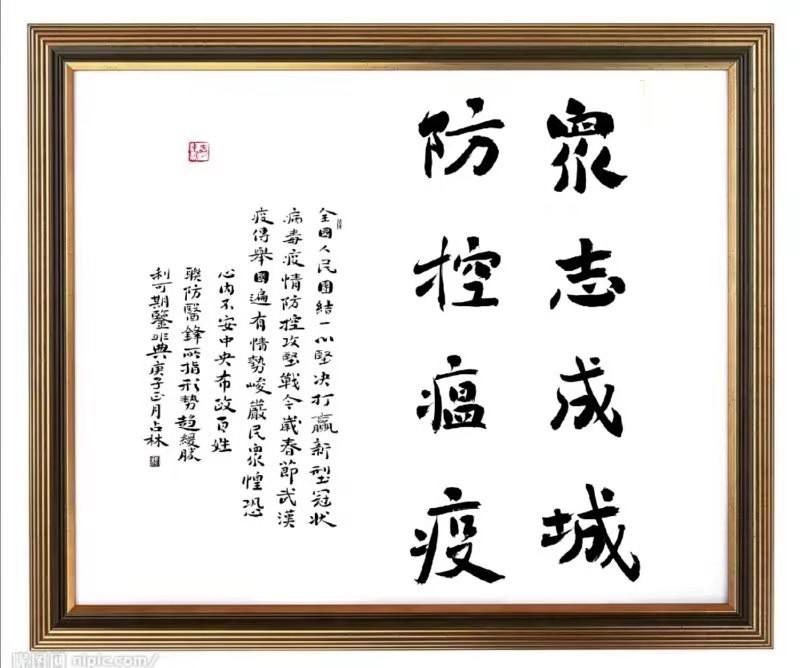 眾志成城
防控瘟疫
全國人民團結一心堅决打贏新型冠状
病毒疫情防控攻堅戰今歲春節武漢
疫傳舉國遍有情勢峻嚴民眾惶恐
心内不安中央布政百姓
聯防醫鋒所指形勢趨緩勝
利可期鑒非典庚子正月占林
昵图网 nipic.com/